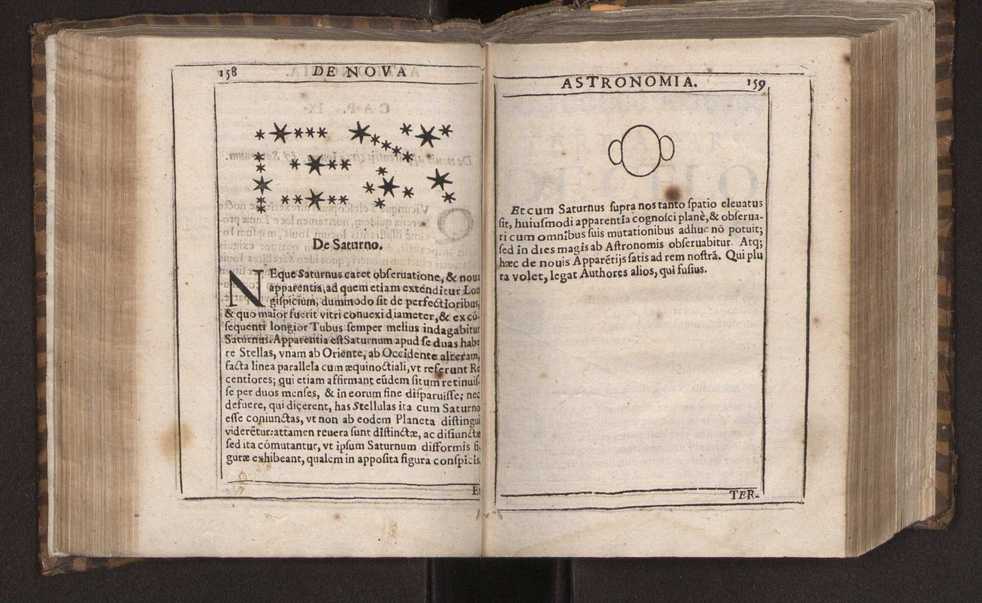 158 DE NOVA
De Saturno.
NEque Saturnus caret obseruatione, & noua
apparentia, ad quem etiam extenditur Lon
gispicium, dummodo sit de perfectioribus,
& quo maior fuerit vitri conuexi diameter, & ex cō-
sequenti longior Tubus semper melius indagabitur
Saturnus. Apparentia est Saturnum apud se duas habe
re Stellas, vnam ab Oriente, ab Occidente alteram,
facta linea parallela cum æquinoctiali, vt referunt Re
centiores; qui etiam affirmant eūdem situm retinuis-
se per duos menses, & in eorum fine disparuisse; nec
defuere, qui dicerent, has Stellulas ita cum Saturno
esse coniunctas, vt non ab eodem Planeta distingui
viderētur: attamen reuera sunt distinctæ, ac disiunctæ
sed ita cōmutantur, vt ipsum Saturnum difformis fi-
guræ exhibeant, qualem in apposita figura conspicis.
Et
ASTRONOMIA. 159
Et cum Saturnus supra nos tanto spatio eleuatus
sit, huiusmodi apparentia cognosci planè, & obserua-
ri cum omnibus suis mutationibus adhuc nō potuit;
sed in dies magis ab Astronomis obseruabitur. Atq;
hæc de nouis Apparētijs satis ad rem nostrā. Qui plu
ra volet, legat Authores alios, qui fusius.
TER-